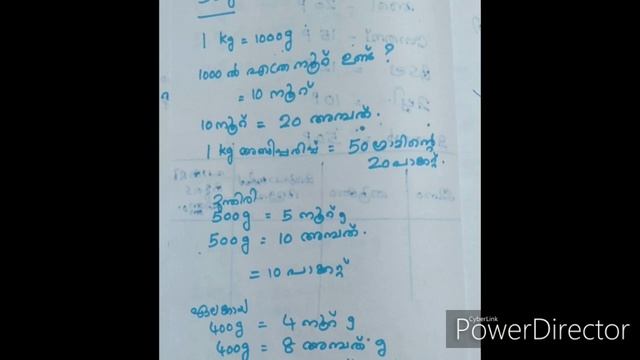 1 kg = 1000g
1000 ൽ എത്ര നൂറ് ഉണ്ട് ?
= 10 നൂറ്
10 നൂറ് = 20 അമ്പത്.
1 kg അണ്ടിപ്പരിപ്പ് = 50 ഗ്രാമിന്റെ
20 പാക്കറ്റ്.
മുന്തിരി
500g = 5 നൂറ് g
500g = 10 അമ്പത്.
= 10 പാക്കറ്റ്
ഏലക്കായ
400g = 4 നൂറ് g
400g = 8 അമ്പത് g
CyberLink
PowerDirector